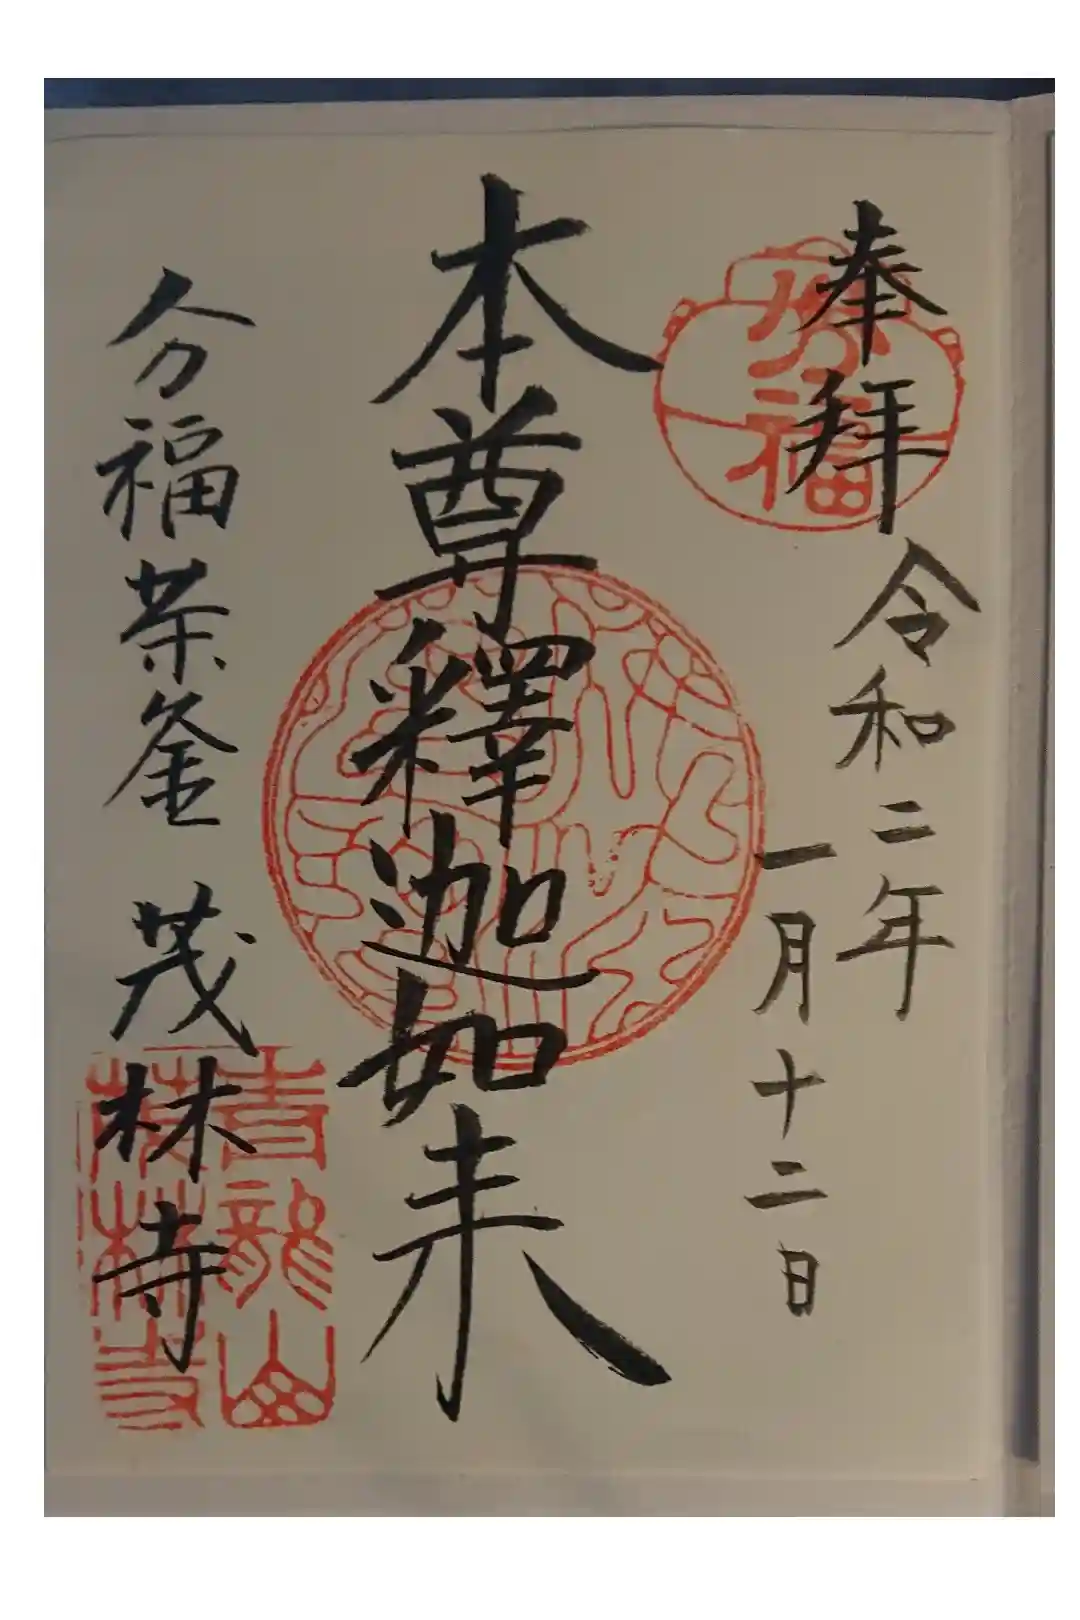 奉拝
令和二年
一月十二日
本尊釋迦如来
分福茶釜 茂林寺
青龍山
茂林寺
分福